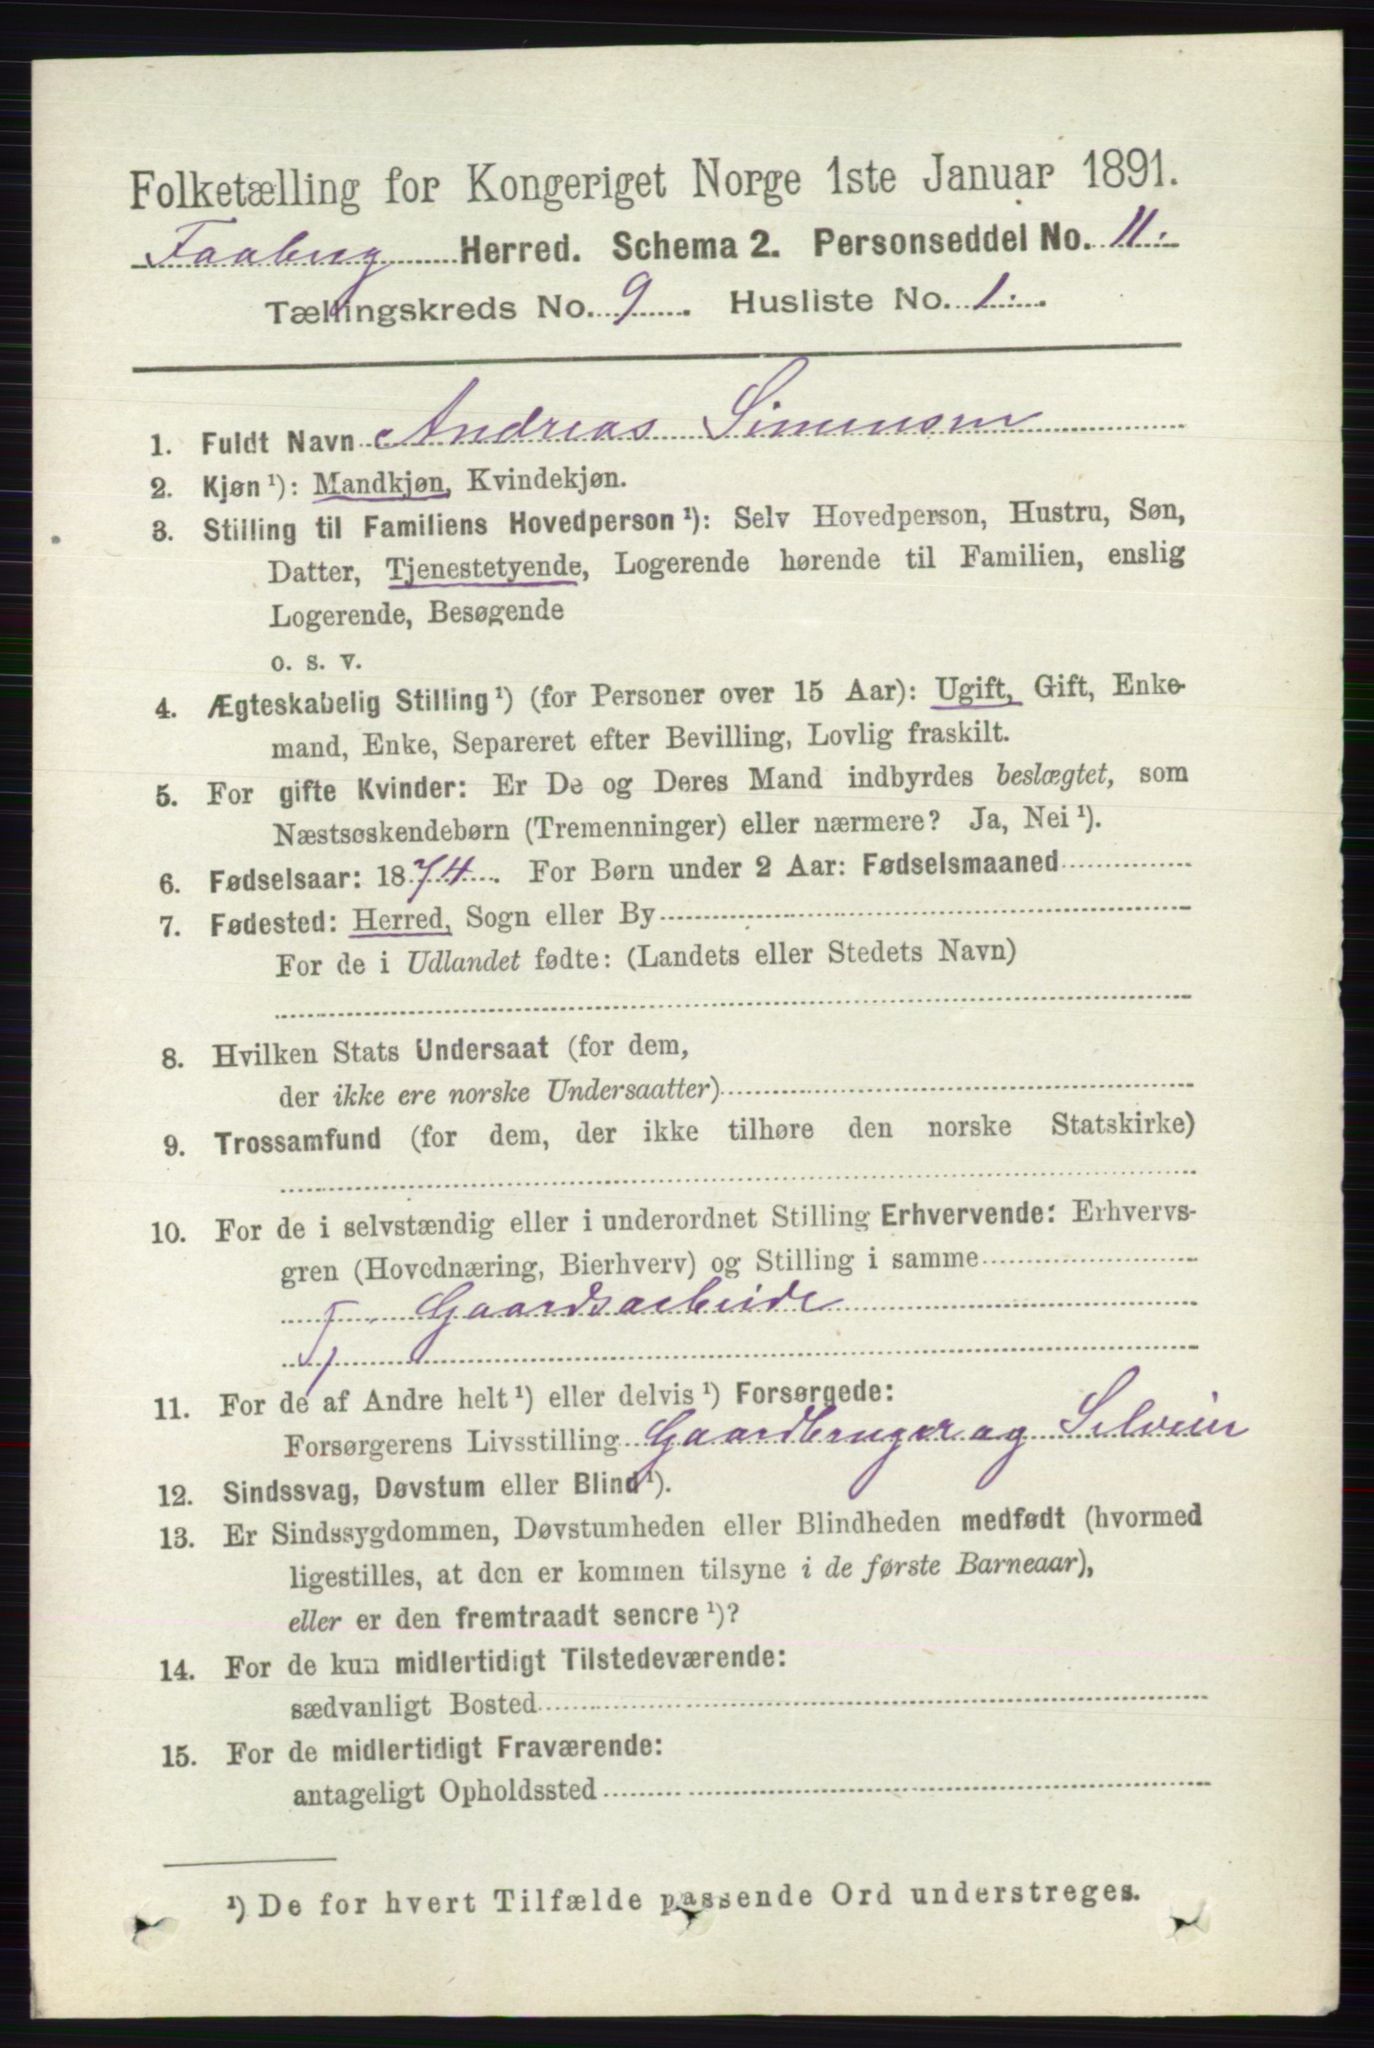 Folketælling for Kongeriget Norge 1ste Januar 1891.
Faaberg Herred. Schema 2. Personseddel No. 11.
Tællingskreds No. 9. Husliste No. 1.
1. Fuldt Navn Andreas Simensen
2. Kjøn¹): Mandkjøn, Kvindekjøn.
3. Stilling til Familiens Hovedperson¹): Selv Hovedperson, Hustru, Søn,
Datter, Tjenestetyende, Logerende hørende til Familien, enslig
Logerende, Besøgende
o. s. v.
4. Ægteskabelig Stilling¹) (for Personer over 15 Aar): Ugift, Gift, Enke-
mand, Enke, Separeret efter Bevilling, Lovlig fraskilt.
5. For gifte Kvinder: Er De og Deres Mand indbyrdes beslægtet, som
Næstsøskendebørn (Tremenninger) eller nærmere? Ja, Nei¹).
6. Fødselsaar: 1874. For Børn under 2 Aar: Fødselsmaaned
7. Fødested: Herred, Sogn eller By
For de i Udlandet fødte: (Landets eller Stedets Navn)
8. Hvilken Stats Undersaat (for dem,
der ikke ere norske Undersaatter)
9. Trossamfund (for dem, der ikke tilhøre den norske Statskirke)
10. For de i selvstændig eller i underordnet Stilling Erhvervende: Erhvervs-
gren (Hovednæring, Bierhverv) og Stilling i samme
Tj. Gaardsarbeide
11. For de af Andre helt¹) eller delvis¹) Forsørgede:
Forsørgerens Livsstilling Gaardbruger og Selveier
12. Sindssvag, Døvstum eller Blind¹).
13. Er Sindssygdommen, Døvstumheden eller Blindheden medfødt (hvormed
ligestilles, at den er kommen tilsyne i de første Barneaar),
eller er den fremtraadt senere¹)?
14. For de kun midlertidigt Tilstedeværende:
sædvanligt Bosted
15. For de midlertidigt Fraværende:
antageligt Opholdssted
¹) De for hvert Tilfælde passende Ord understreges.